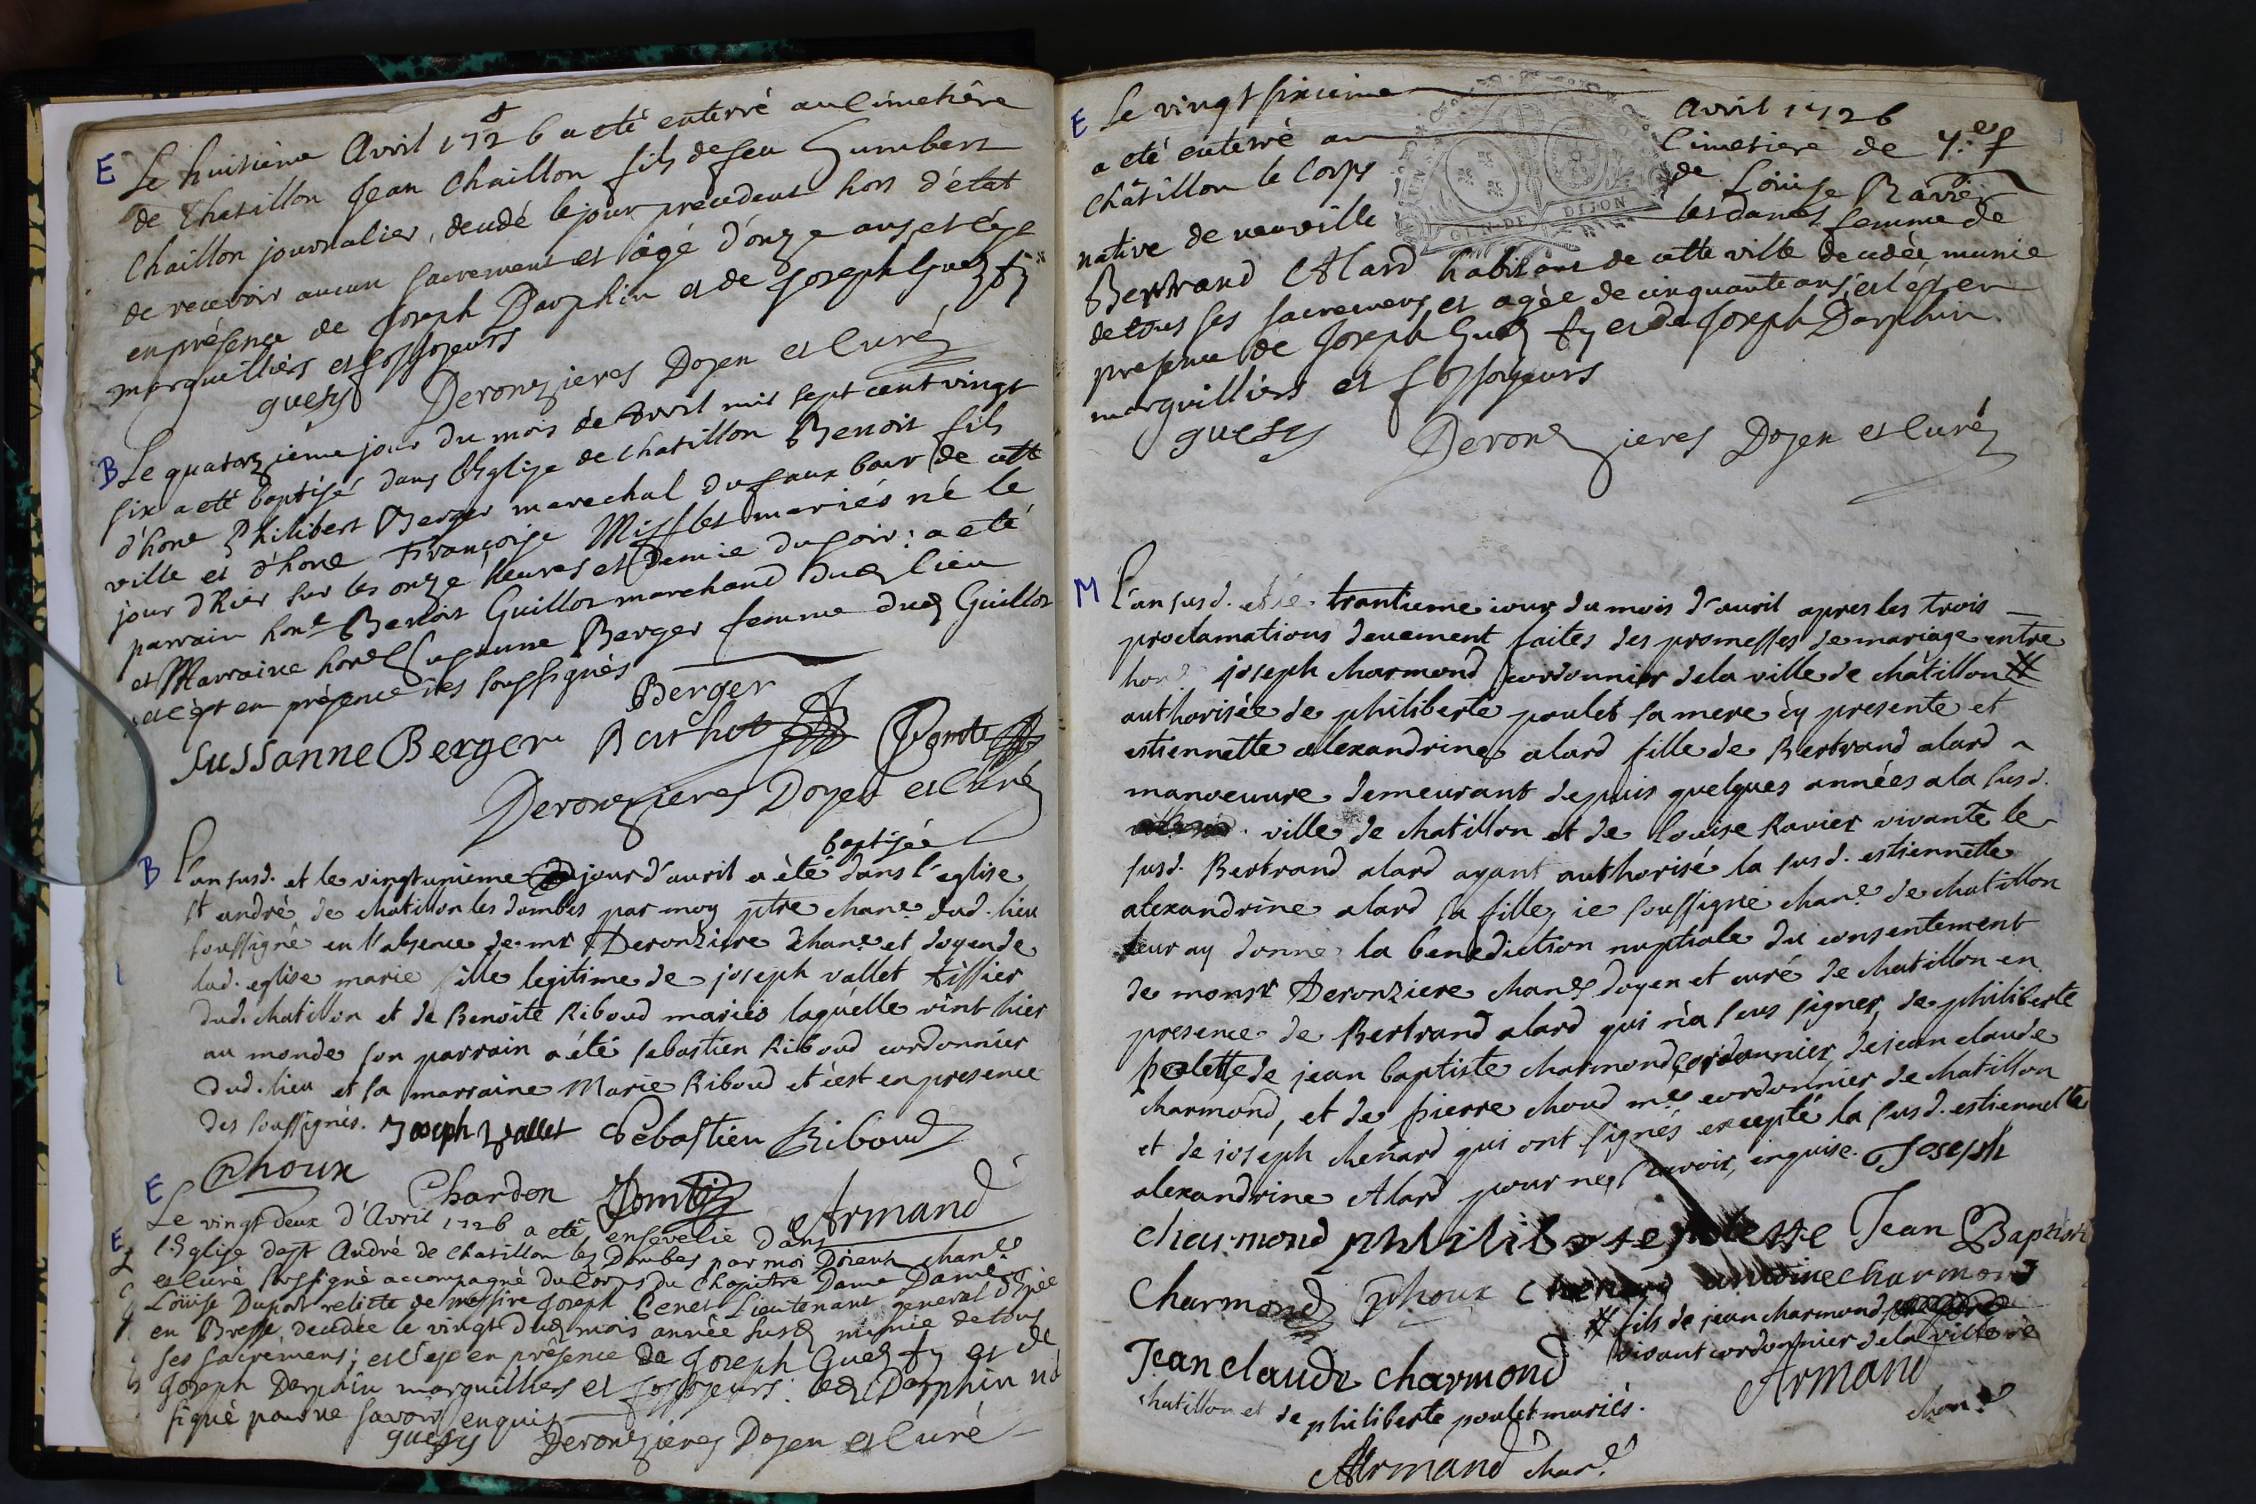 E Le huitième Avril 1726 a eté enterré au Cimetière
de Chatillon Jean Chaillon fils de feu Humbert
Chaillon journalier, decedé le jour précedent hors d'état
de recevoir aucun sacrement et âgé d'onze ans et c'est
en présence de Joseph Darphin et de Joseph Guesy
marguilliers et fossoyeurs
guesy Deronzieres Doyen et Curé
B Le quatorzième jour du mois de Avril mil sept cent vingt
six a eté baptisé dans l'Eglise de Chatillon Benoit fils
d'hone Philibert Berger marechal du faux bour de cette
ville et d'hone Françoise mariés né le
jour d'hier sur les onze heures et demie du soir: a eté
parrain hone Benoit Guillot marchand dud lieu
et Marraine hone Susanne Berger femme dud Guillot
et c'est en présence des soussignés
Berger
Sussanne Berger Bachot Comte
Deronzieres Doyen et Curé
baptisée
B L'an susd. et le vingtunieme jour d'auril a èté dans l'eglise
st andré de chatillon les dombes par moy ptre chane. dud. lieu
soussigné en l'absence de mr Deronziere chane. et doyen de
lad. eglise marie fille legitime de joseph vallet tissier
dud. chatillon et de Benoite Riboud mariés laquelle vint hier
au monde son parrain a été sebastien Riboud cordonnier
dud. lieu et sa marraine Marie Riboud et c'est en presence
des soussignés. Joseph vallet Sebastien Riboud
Choux Chardon Comte Armand
E Le vingt deux d'Avril 1726 a eté ensevelie dans
E l'Eglise de st André de Chatillon les Dombes par moi Doien chane
et Curé soussigné accompagné du Corps du Chapitre Dame Dame
Loüise Duport relicte de messire Joseph Cenet Lieutenant general d'Epée
en Bresse, decedée le vingt dud mois année susd munie de tous
ses sacremens; et c'est en présence de Joseph Guesy et de
Joseph Darphin marguilliers et fossoyeurs: led Darphin n'a
signé pour ne savoir enquis
guesy Deronzieres Doyen et Curé
E Le vingt sixieme Avril 1726
a eté enterré au Cimetiere de
Châtillon le Corps de Loüise Ravier
native de neuville les dames femme de
Bertrand Alard habitant de cette ville decedée munie
de tous ses sacremens et agée de cinquante ans et c'est en
presence de Joseph Guesy et de Joseph Darphin
marguilliers et fossoyeurs
guesy Deronzieres Doyen et Curé
GEN. DE DIJON
M L'an susd. et le trantieme iour du mois d'auril apres les trois
proclamations deuement faites des promesses de mariage entre
hon. joseph charmond cordonnier de la ville de châtillon #
authorisée de philiberte poulet sa mere cy presente et
estiennette alexandrine alard fille de Bertrand alard
manoeuure demeurant depuis quelques années a la susd.
ville de chatillon et de louise Ravier vivante le
susd. Bertrand alard ayant authorisé la susd. estiennette
alexandrine alard sa fille, ie soussigné chane. de chatillon
leur ay donné la benediction nuptiale du consentement
de monsr Deronziere chane doyen et curé de chatillon en
presence de Bertrand alard qui n'a seus signer, de philiberte
polette de jean baptiste charmond cordonnier de jean claude
charmond, et de pierre choud me cordonnier de chatillon
et de joseph chenard qui ont signés excepté la susd. estiennette
alexandrine Alard pour ne scavoir, enquise. Joseph
charmond philiberte polette Jean Baptiste
Charmond Choux Chenard antoine charmond
# fils de jean charmond
Jean claude charmond vivant cordonnier de la ville de
Armand
chane
chatillon et de philiberte poulet mariés.
Armand chane